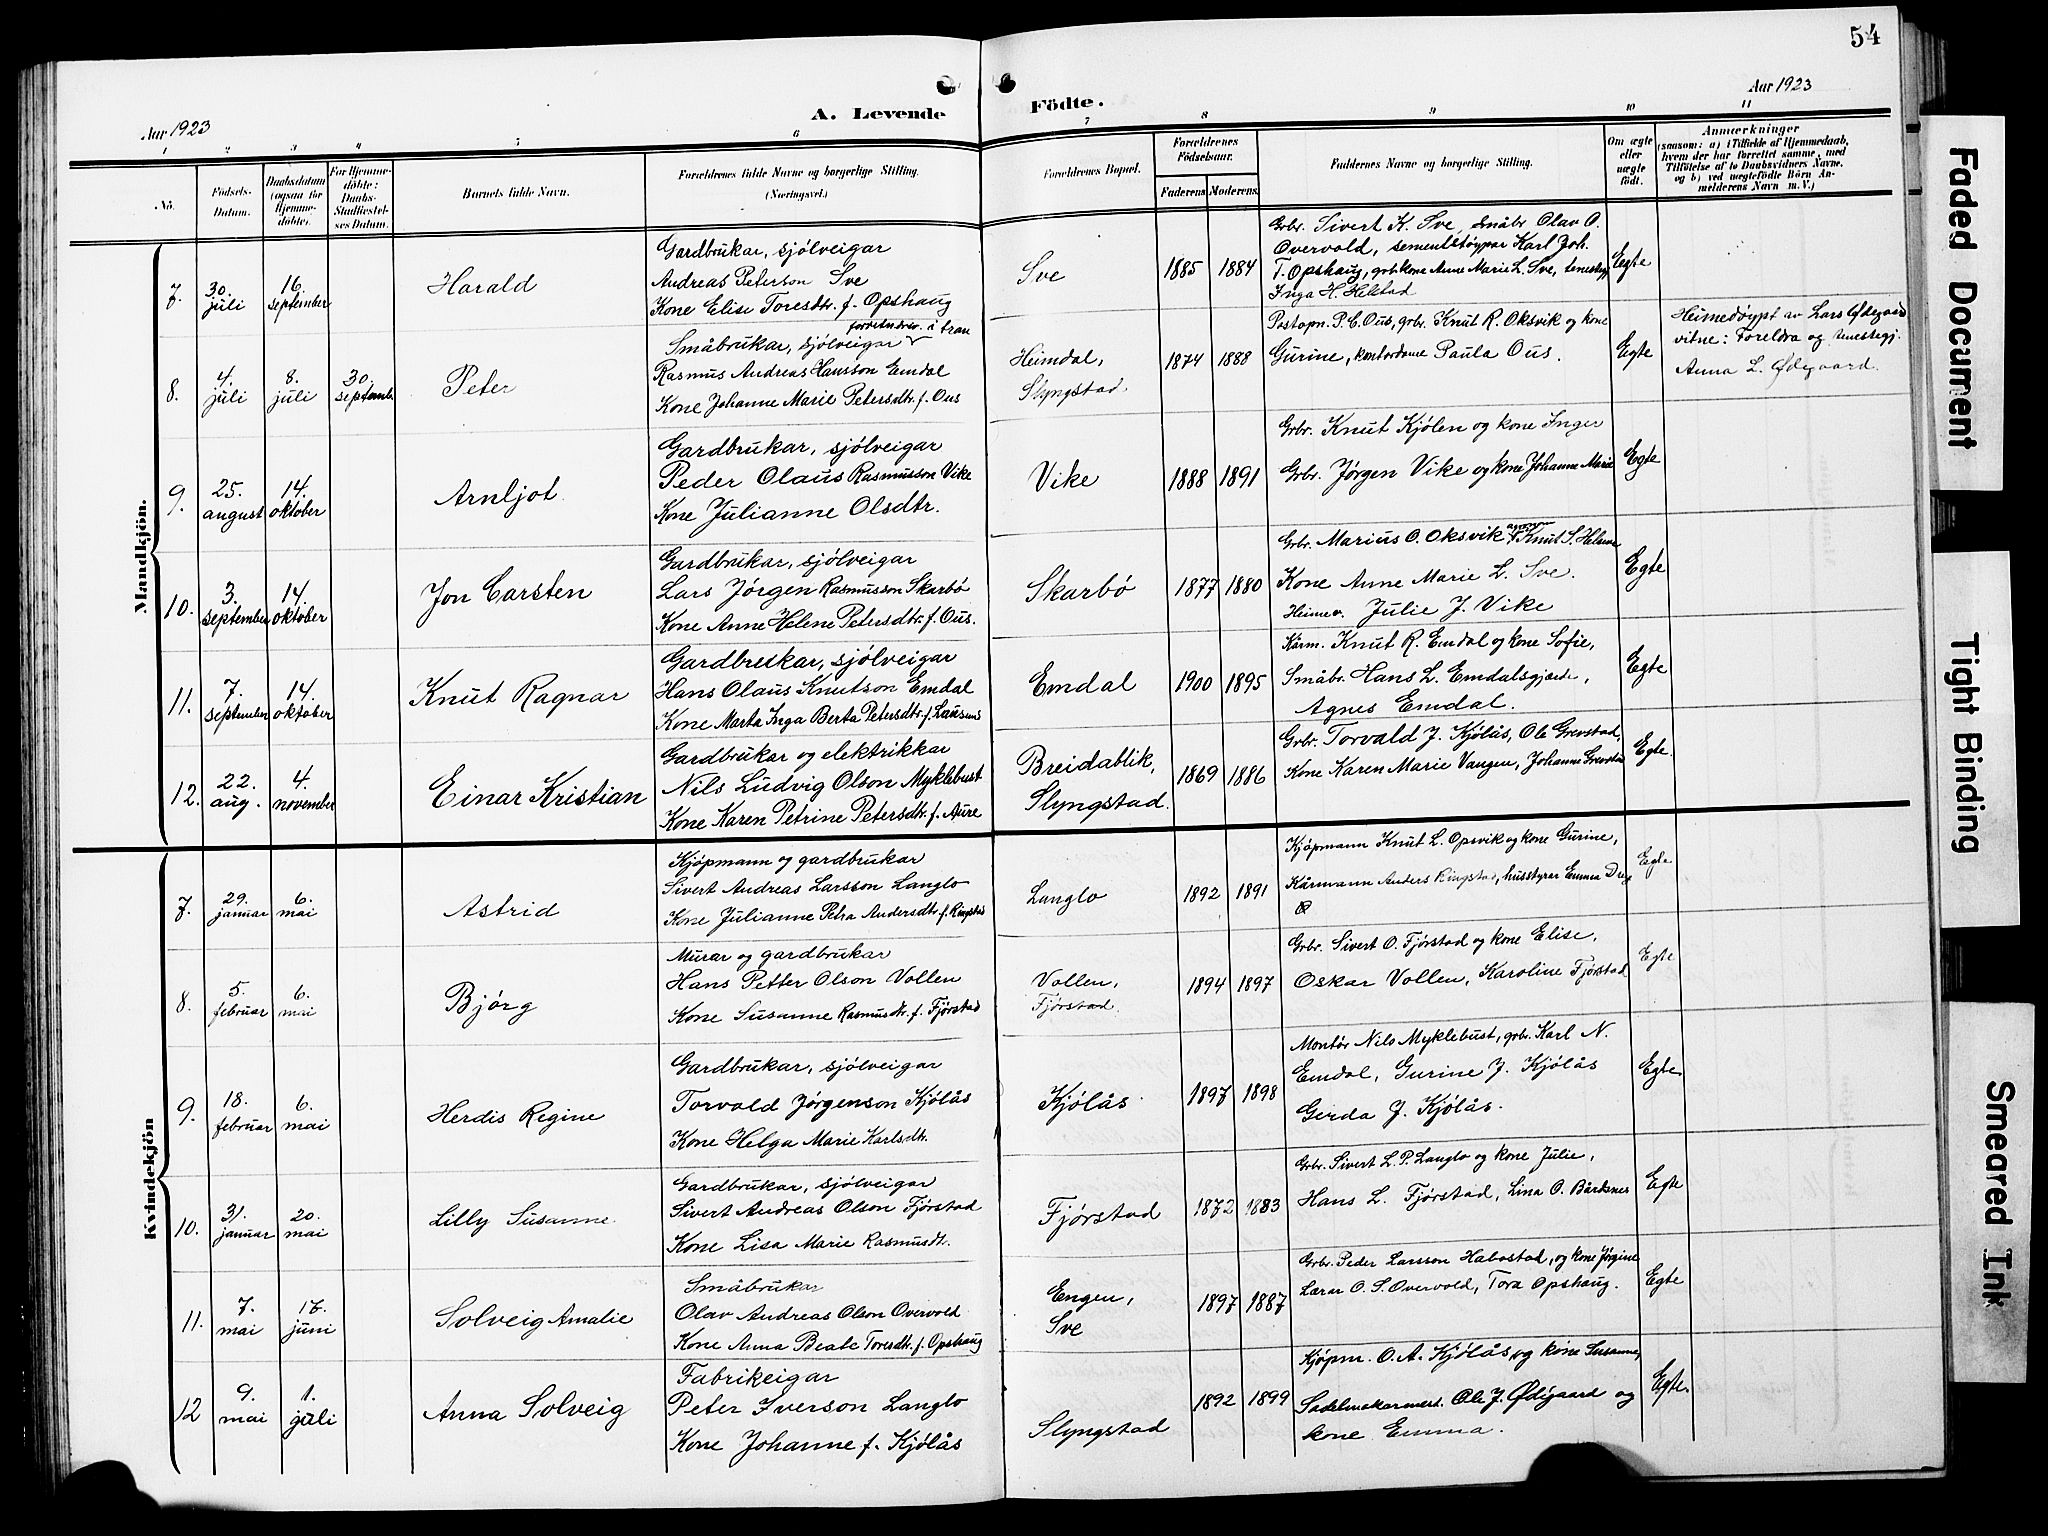 54
Aar 1923
A. Levende
Födte.
Aar 1923
1 2 3 4 5 6 7 8 9 10 11
No.
Födsels-Datum.
Daabsdatum (ogsaa for Hjemmedöbte).
For Hjemmedöbte: Daabs-Stadfæstelses Datum.
Barnets fulde Navn.
Forældrenes fulde Navne og borgerlige Stilling. (Næringsvei.)
Forældrenes Bopæl.
Forældrenes Födselsaar.
Faderens. Moderens.
Faddernes Navne og borgerlige Stilling.
Om ægte eller uægte födt.
Anmærkninger
(saasom: a) i Tilfælde af Hjemmedaab,
hvem der har forrettet samme, med
Tilföielse af to Daabsvidners Navne.
og b) ved uægtefödte Börn An-
melderens Navn m. V.)
Mandkjön.
7. 30. juli 16. september
Harald
Gardbrukar, sjølveigar
Andreas Peterson Sve
Kone Elise Toresdtr. f. Opshaug
Sve
1885 1884
Grbr. Sivert K. Sve, småbr. Olav O.
Overvold, sementstøypar Karl Joh.
T. Opshaug, grbr.kone Anne Marie L. Sve, tenestgj.
Inga H. Helstad
Egte
8. 4. juli 8. juli 30. septemb.
Peter
forretndriv. i tran
Småbrukar, sjølveigar
Rasmus Andreas Hansson Emdal
Kone Johanne Marie Petersdtr. f. Ous
Heimdal,
Slyngstad.
1874 1888
Postopn. P. C. Ous, grbr. Knut R. Oksvik og kone
Gurine, kontordame Paula Ous.
Egte
Heimedøypt av Lars Ødegaard
vitne: Foreldra og tenestegj.
Anna L. Ødegaard.
9. 25. august 14. oktober
Arnljot.
Gardbrukar, sjølveigar
Peder Olaus Rasmusson Vike
Kone Julianne Olsdtr.
Vike
1888 1891
Grbr. Knut Kjölen og kone Inger
Grbr. Jørgen Vike og kone Johanne Marie
Egte
10. 3. september 14. oktober
Jon Carsten
Gardbrukar, sjølveigar
Lars Jørgen Rasmusson Skarbø
Kone Anne Helene Petersdtr. f. Ous.
Skarbø
1877 1880
Grbr. Marius O. Oksvik Knut S. Helsem
Kone Anne Marie L. Sve.
Heimev. Julie J. Vike
Egte
11. 7. september 14. oktober
Knut Ragnar
Gardbrukar, sjølveigar
Hans Olaus Knutson Emdal
Kone Marta Inga Berta Petersdtr. f.
Emdal
1900 1895
Kårm. Knut R. Emdal og kone Sofie,
Småbr. Hans L. Emdalsgjærde,
Agnes Emdal.
Egte
12. 22. aug. 4. november
Einar Kristian
Gardbrukar og elektrikkar
Nils Ludvig Olson Myklebust
Kone Karen Petrine Petersdtr. f. Aure
Breidablik,
Slyngstad.
1869 1886
Grbr. Torvald J. Kjølås, Ole Grevstad,
Kone Karen Marie Vangen, Johanne Grevstad
Egte.
Kvindekjön
7. 29. januar 6. mai
Astrid
Kjøpmann og gardbrukar
Sivert Andreas Larsson Langlo
Kone Julianne Petra Andersdtr. f. Ringstad
Langlo
1892 1891
Kjøpmann Knut L. Opsvik og kone Gurine,
Kårmann Anders Ringstad, husstyrar Emma
Egte
8. 5. februar 6. mai
Bjørg
Murar og gardbrukar
Hans Petter Olson Vollen
Kone Susanne Rasmusdtr. f. Fjørstad
Vollen,
Fjørstad.
1894 1897
Grbr. Sivert O. Fjørstad og kone Elise,
Oskar Vollen, Karoline Fjørstad
Egte
9. 18. februar 6. mai
Herdis Regine
Gardbrukar, sjølveigar
Torvald Jørgenson Kjølås
Kone Helga Marie Karlsdtr.
Kjølås
1897 1898
Montør Nils Myklebust, grbr. Karl N.
Emdal, Gurine J. Kjølås
Gerda J. Kjølås.
Egte
10. 31. januar 20. mai
Lilly Susanne.
Gardbrukar, sjølveigar
Sivert Andreas Olson Fjørstad
Kone Lisa Marie Rasmusdtr.
Fjørstad
1872 1883
Grbr. Sivert L. P. Langlo og kone Julie,
Hans L. Fjørstad, Lina O. Bårdsnes
Egte
11. 7. mai 17. juni
Solveig Amalie
Småbrukar
Olav Andreas Olson Overvold
Kone Anna Beate Toresdtr. f. Opshaug
Engen,
Sve
1897 1887
Grbr. Peder Larsson Habostad, og kone Jørgine
Lærar O. S. Overvold, Tora Opshaug.
Egte
12 9. mai 1. juli
Anna Solveig
Fabrikeigar
Peter Iverson Langlo
Kone Johanne f. Kjølås
Slyngstad
1892 1899
Kjøpm. O. A. Kjølås, og kone Susanne,
Sadelmakarmest. Ole J. Ødegaard og
kone Emma.
Egte.
Faded Document
Tight Binding
Smeared Ink